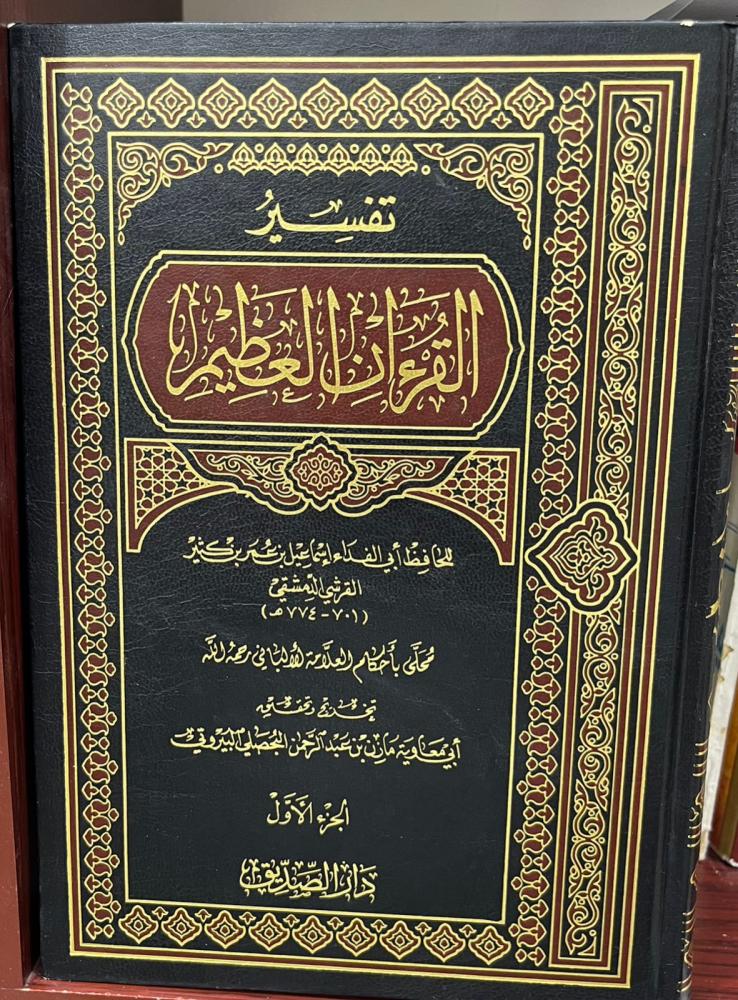 تفسير
القرءان العظيم
للحافظ أبي الفداء إسماعيل بن عمر بن كثير
القرشي الدمشقي
(٧٠١-٧٧٤هـ)
محلى بأحكام العلامة الألباني رحمه الله
تخريج وتحقيق
أبي معاوية مازن بن عبد الرحمن البحصلي البيروتي
الجزء الأول
دار الصديق